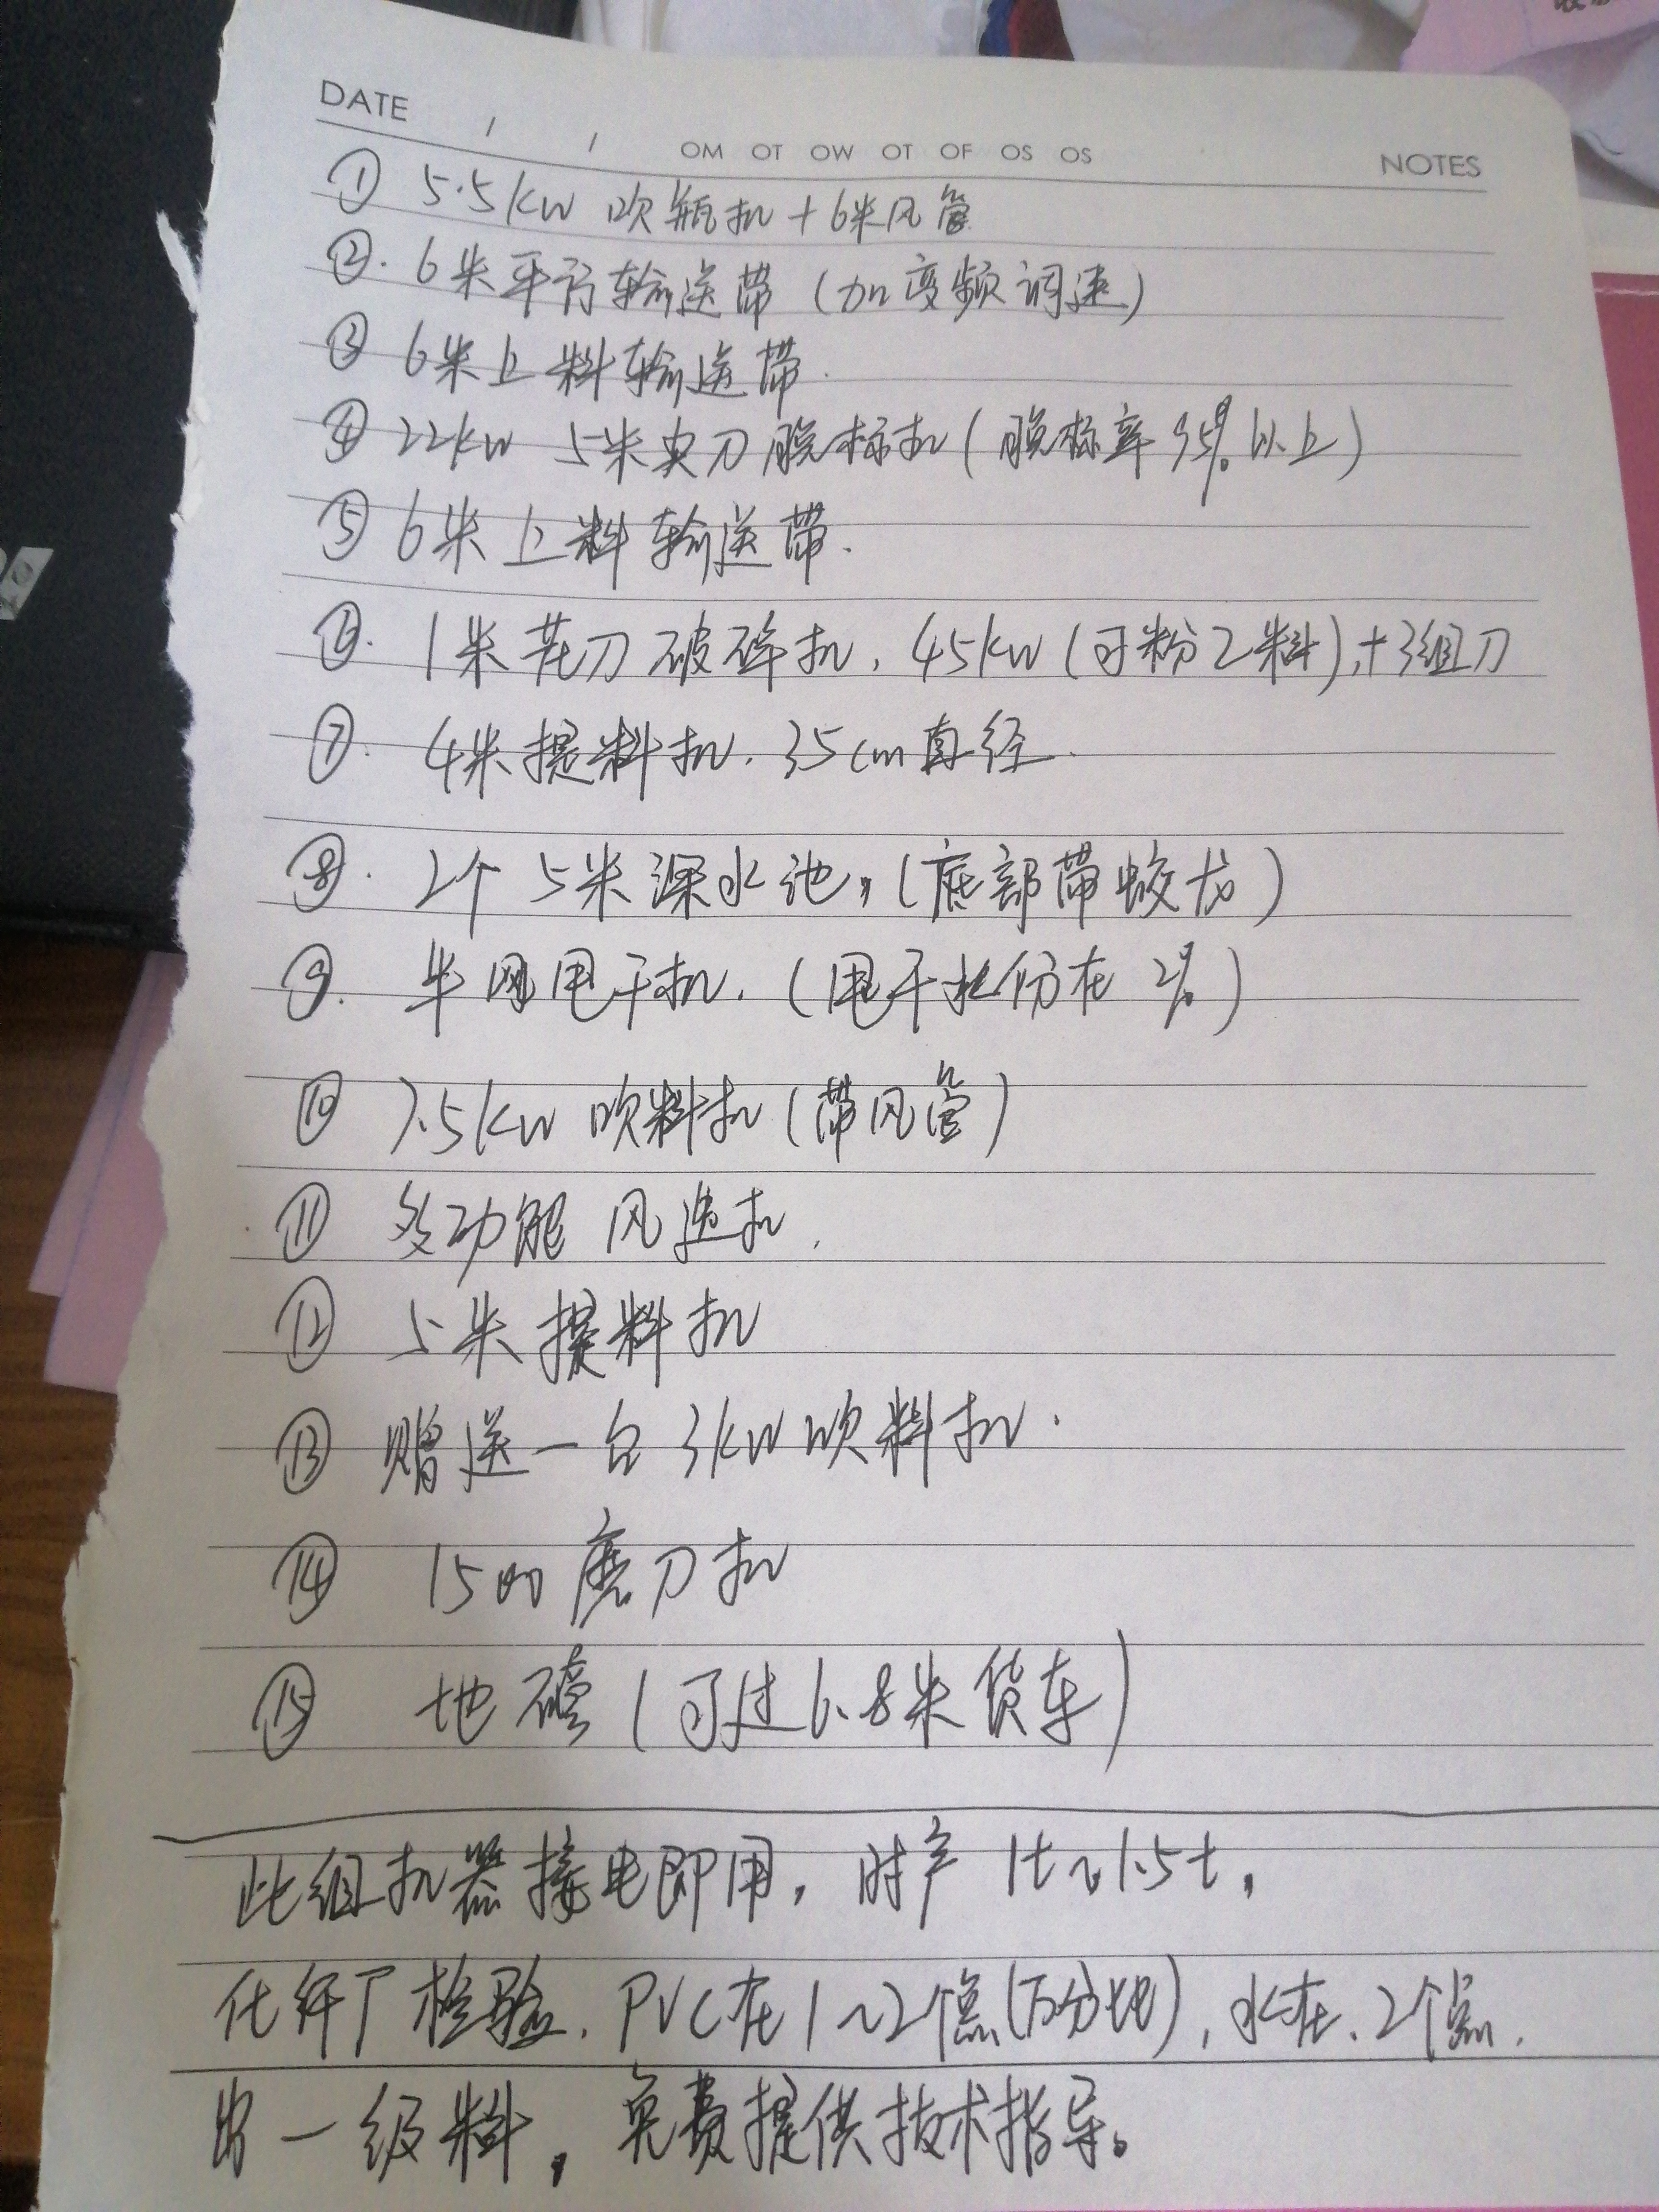 DATE / / OM OT OW OT OF OS OS NOTES
① 5.5kw 吹瓶机+6米风管
②. 6米平行输送带（加变频调速）
③ 6米上料输送带.
④ 22kw 5米 刀脱标机（脱标率95%以上）
⑤ 6米上料输送带.
⑥. 1米花刀破碎机, 45kw（可粉2料）,+3组刀
⑦. 4米提料机. 35cm直径.
⑧. 2个5米深水池,（底部带蛟龙）
⑨. 半网甩干机.（甩干水份在2%）
⑩ 7.5kw 吹料机（带风管）
⑪ 多功能 风选机.
⑫ 5米提料机
⑬ 赠送一台3kw吹料机.
⑭ 1500磨刀机
⑮ 地磅（可过6.8米货车）
此组机器接电即用，时产1t~1.5t，
化纤厂检验. PVC在1~2个点(万分比), 水在.2个点.
出一级料，免费提供技术指导。